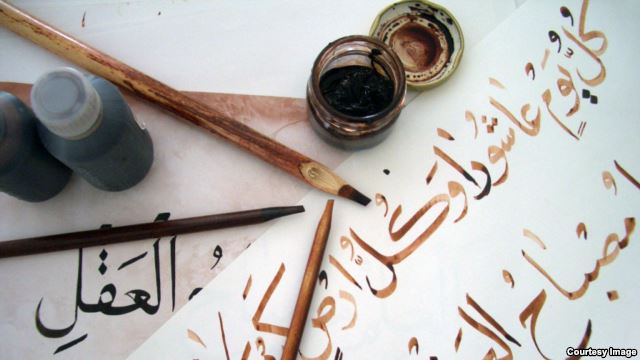 كُلُّ يَومٍ عاشُورا وَكُلُّ ارضٍ
مصباح
العَقلِ
Courtesy Image